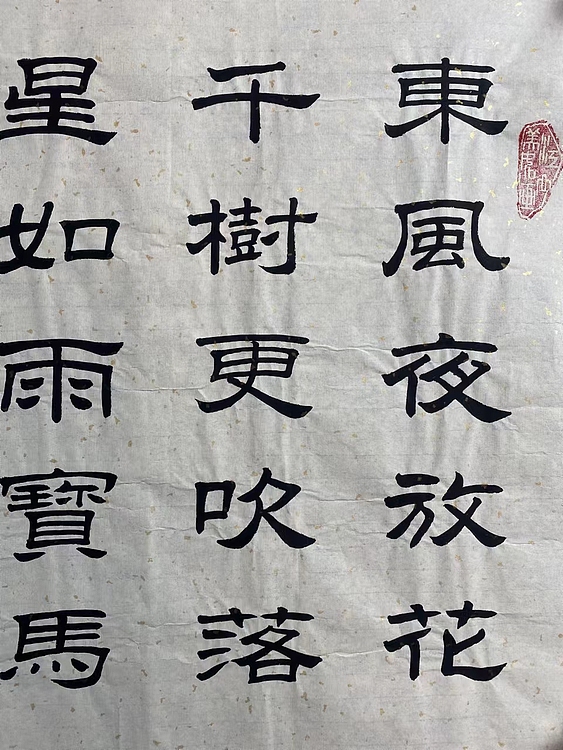 東風夜放花
千樹更吹落
星如雨寶馬